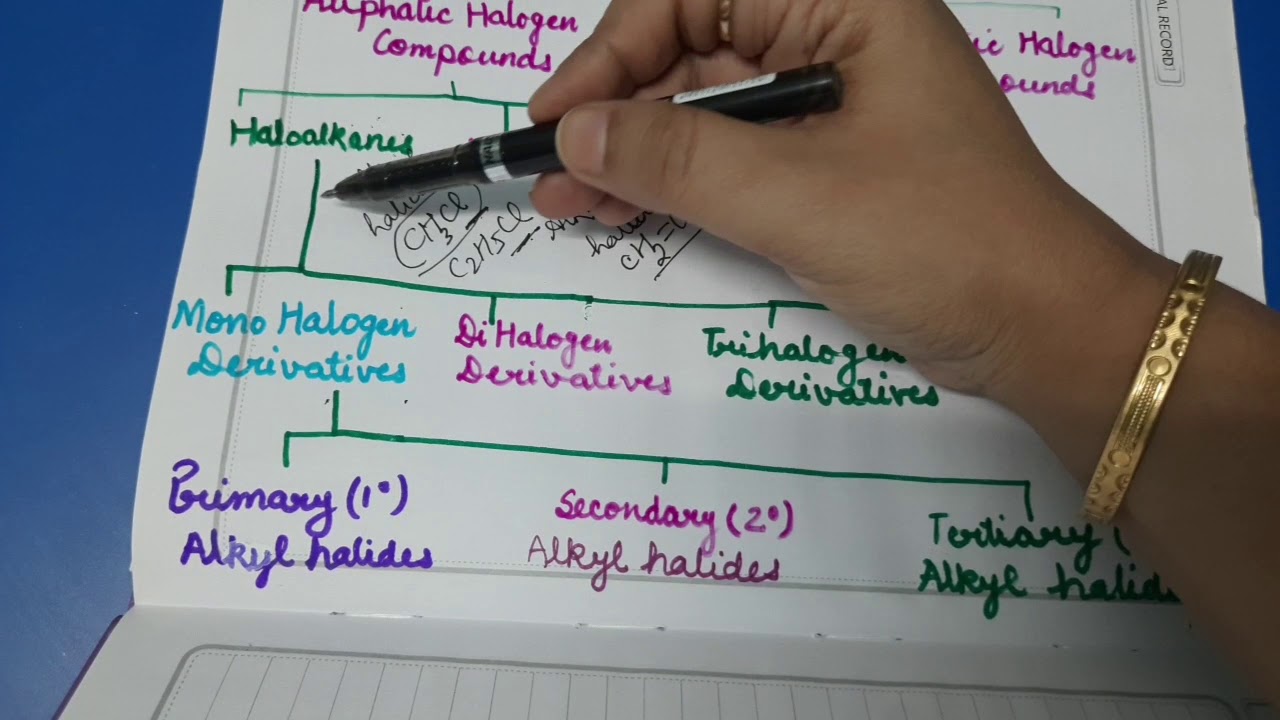 Aliphatic Halogen
Compounds
ic Halogen
ounds
AL RECORD
Haloalkanes
CH3Cl
C2H5Cl
CH2=
Mono Halogen
Derivatives
Di Halogen
Derivatives
Trihalogen
Derivatives
Primary (1°)
Alkyl halides
Secondary (2°)
Alkyl halides
Tertiary (
Alkyl halid